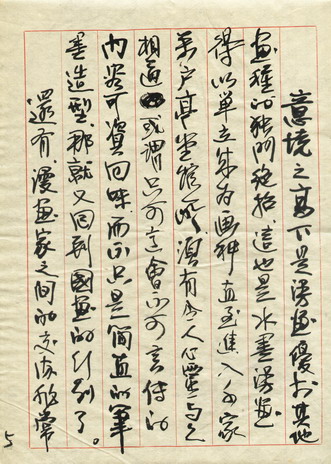 意境之高下是漫画优于其他
画种的独门绝招，这也是水墨漫画
得以单立成为画种直至进入千家
万户高堂馆所，须有令人心灵与之
相通或谓只可意会不可言传的
内容可资回味，而不只是简直的笔
墨造型，那就又回到國画的行列了。
還有，漫画家之间的交流非常
5